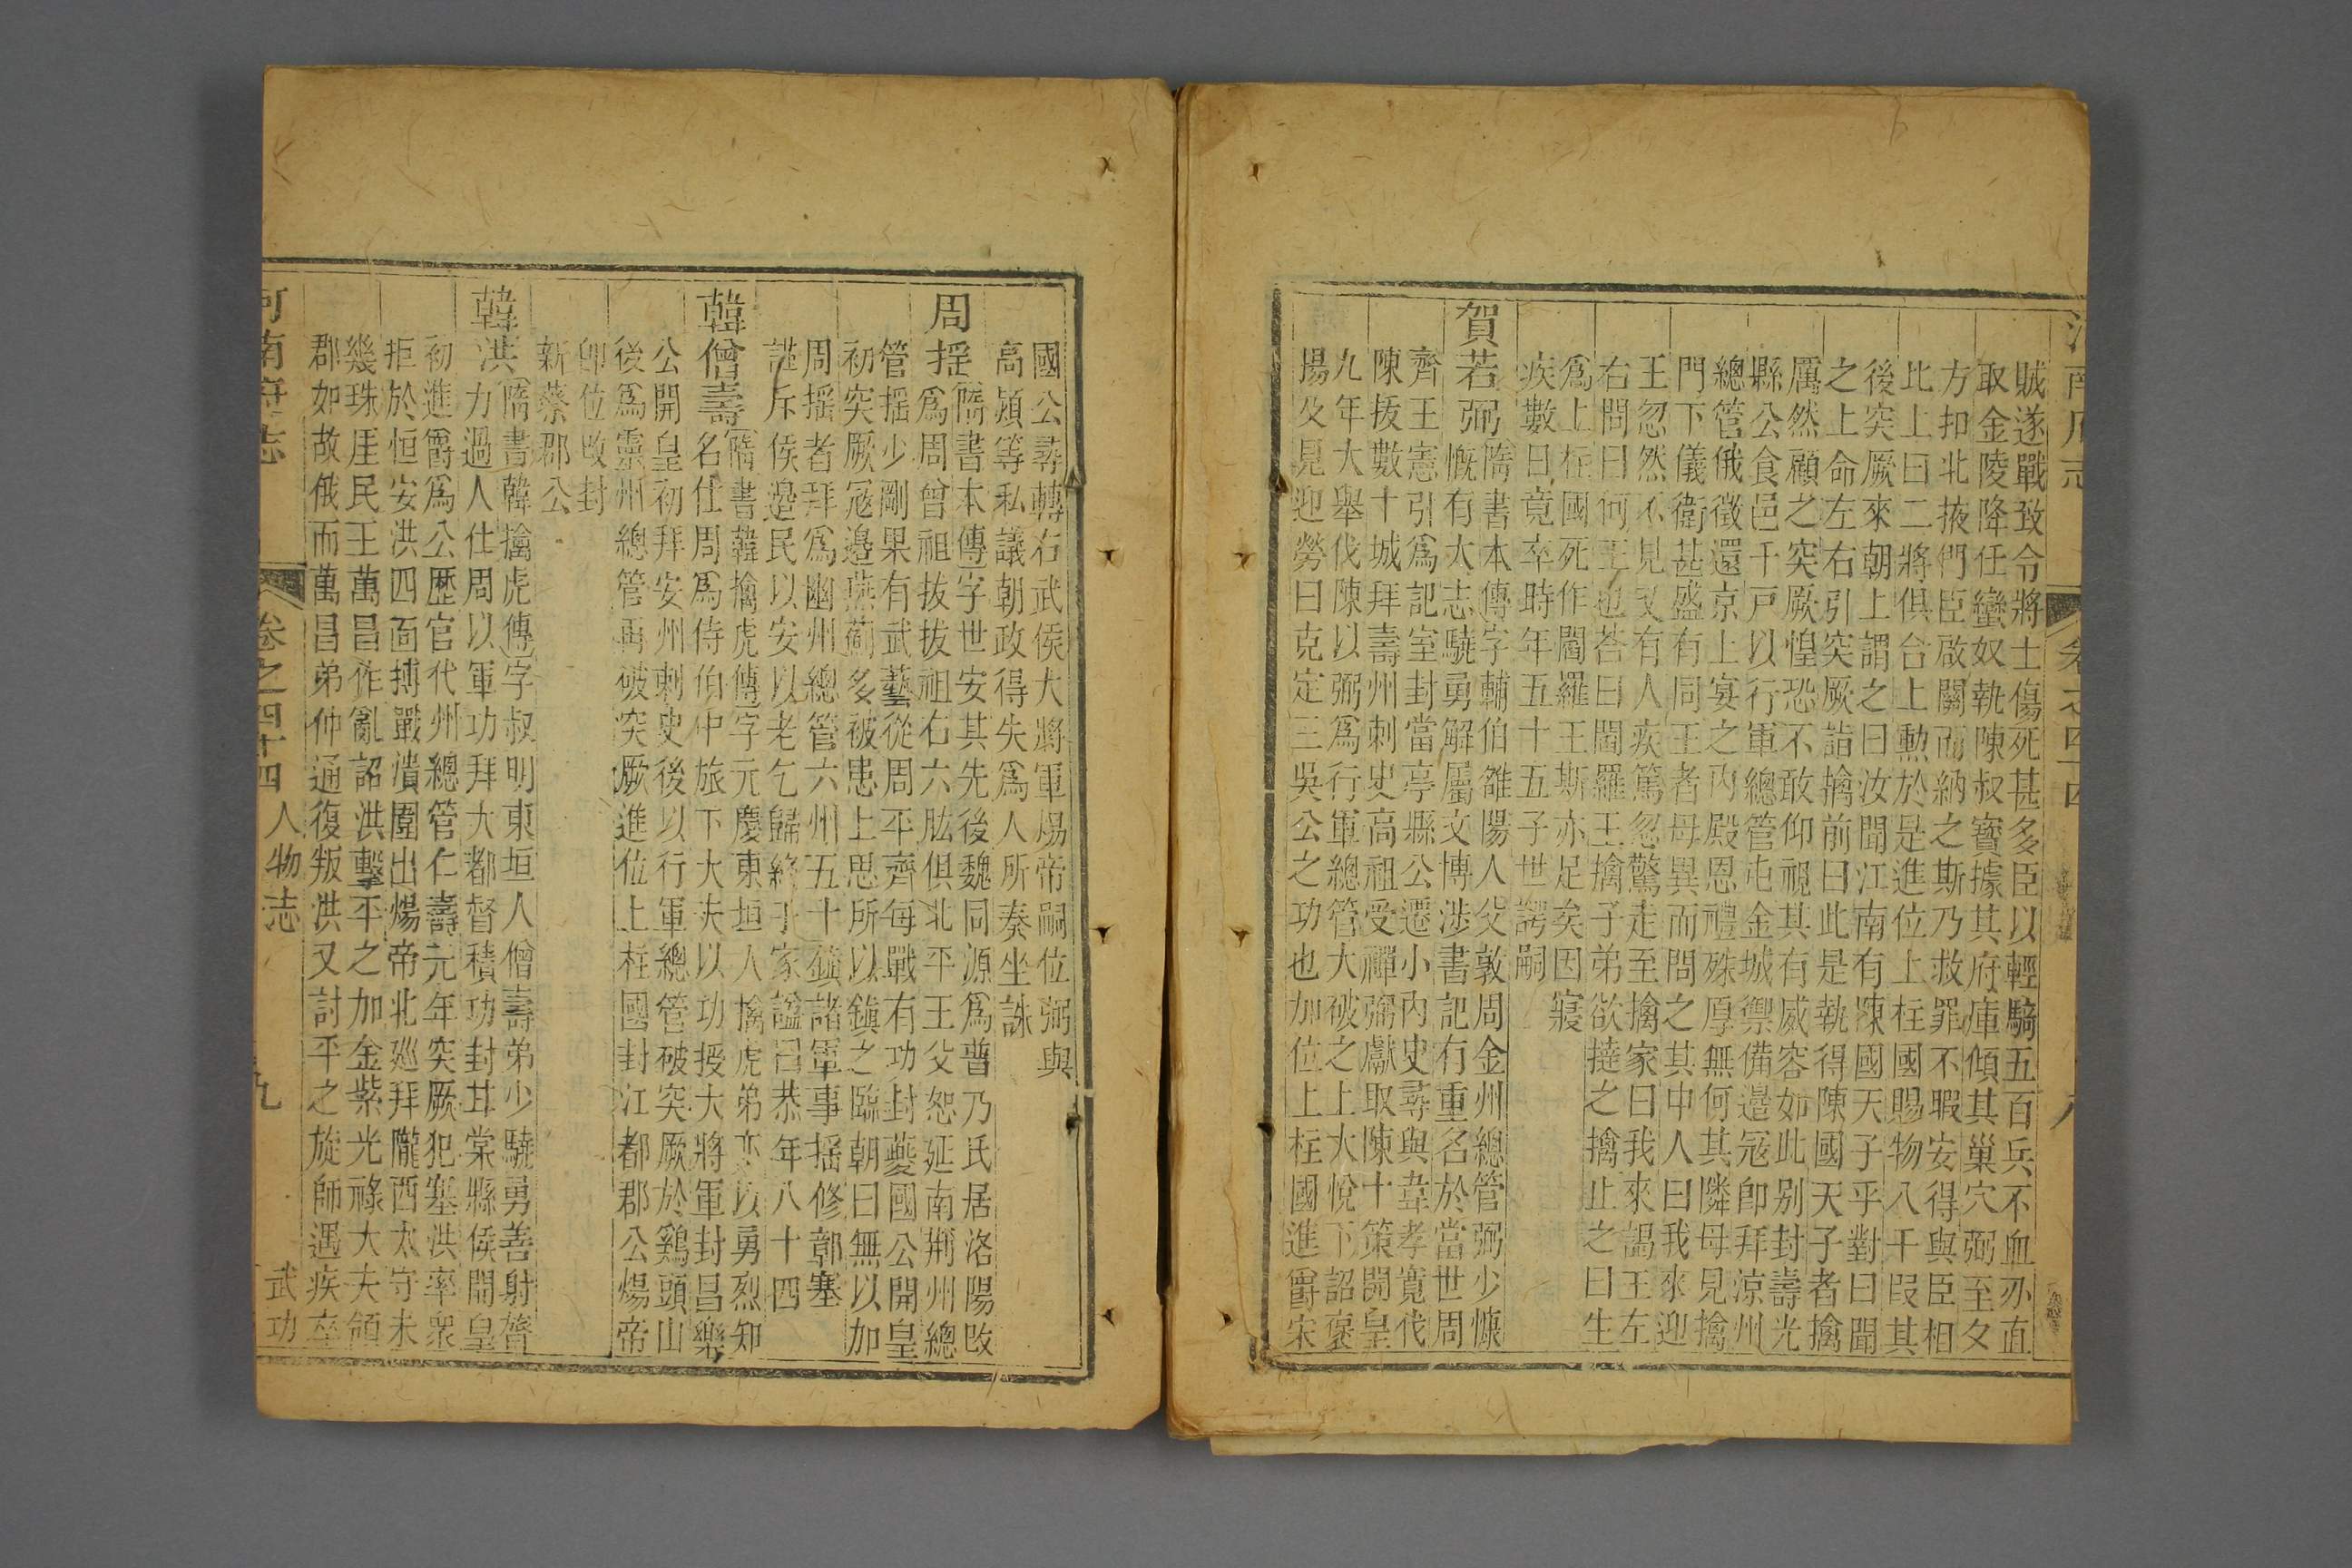 河南府志 卷之四十四 八
賊遂戰致令將士傷死甚多臣以輕騎五百兵不血刃直
取金陵降任蠻奴執陳叔寶據其府庫傾其巢穴弼至夕
方扣北掖門臣啟關而納之斯乃救罪不暇安得與臣相
比上曰二將俱合上勲於是進位上柱國賜物八千段其
後突厥來朝上謂之曰汝聞江南有陳國天子乎對曰聞
之上命左右引突厥詣擒前曰此是執得陳國天子者擒
厲然顧之突厥惶恐不敢仰視其有威容如此别封壽光
縣公食邑千戸以行軍總管屯金城禦備邉冦卽拜涼州
總管俄徵還京上宴之内殿恩禮殊厚無何其隣母見擒
門下儀衛甚盛有同王者母異而問之其中人曰我來迎
王忽然不見又有人疾篤忽驚走至擒家曰我來謁王左
右問曰何王也荅曰閻羅王擒子弟欲撻之擒止之曰生
爲上柱國死作閻羅王斯亦足矣因寢
疾數日竟卒時年五十五子世諤嗣
賀若弼隋書本傳字輔伯雒陽人父敦周金州總管弼少慷
慨有大志驍勇解屬文博涉書記有重名於當世周
齊王憲引爲記室封當亭縣公遷小内史尋與韋孝寬伐
陳拔數十城拜壽州刺史高祖受禪弼獻取陳十策開皇
九年大舉伐陳以弼爲行軍總管大破之上大悅下詔褒
揚及見迎勞曰克定三吳公之功也加位上柱國進爵宋
國公尋轉右武侯大將軍煬帝嗣位弼與
高熲等私議朝政得失爲人所奏坐誅
周揺隋書本傳字世安其先後魏同源爲普乃氏居洛陽改
爲周曾祖拔拔祖右六肱俱北平王父恕延南荆州總
管揺少剛果有武藝從周平齊每戰有功封夔國公開皇
初突厥冦邉燕薊多被患上思所以鎭之臨朝曰無以加
周揺者拜爲幽州總管六州五十鎭諸軍事揺修鄣塞
謹斥侯邉民以安以老乞歸終于家謚曰恭年八十四
韓僧壽隋書韓擒虎傳字元慶東垣人擒虎弟亦以勇烈知
名仕周爲侍伯中旅下大夫以功授大將軍封昌樂
公開皇初拜安州刺史後以行軍總管破突厥於鷄頭山
後爲靈州總管再破突厥進位上柱國封江都郡公煬帝
卽位改封
新蔡郡公
韓洪隋書韓擒虎傳字叔明東垣人僧壽弟少驍勇善射膂
力過人仕周以軍功拜大都督積功封甘棠縣侯開皇
初進爵爲公歷官代州總管仁壽元年突厥犯塞洪率衆
拒於恒安洪四面搏戰潰圍出煬帝北廵拜隴西太守未
幾珠厓民王萬昌作亂詔洪擊平之加金紫光祿大夫領
郡如故俄而萬昌弟仲通復叛洪又討平之旋師遇疾卒
河南府志 卷之四十四 人物志 九 武功